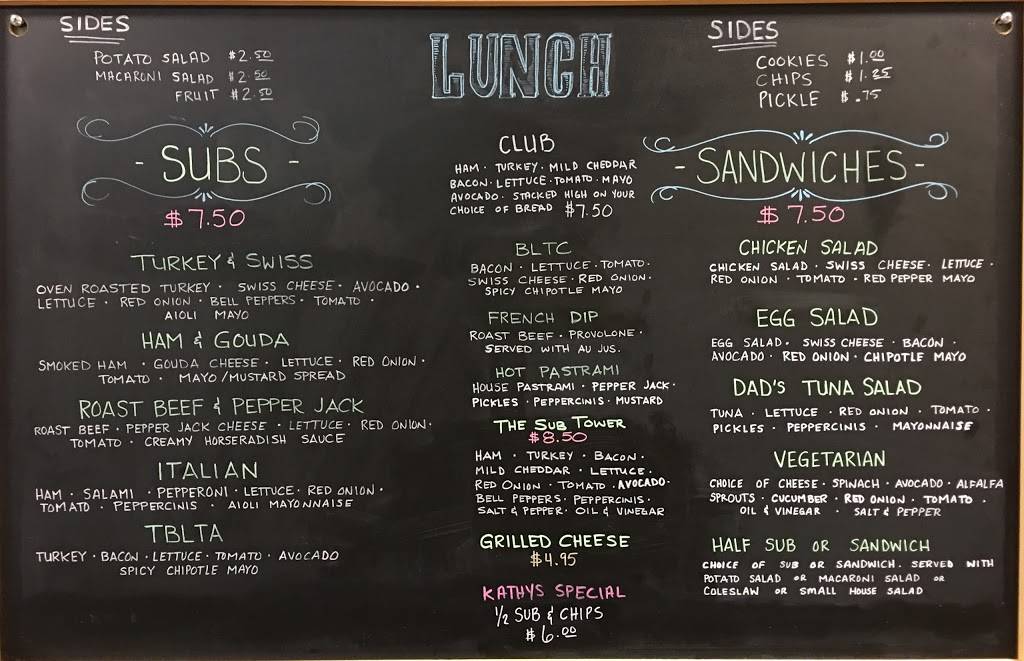 SIDES
POTATO SALAD $2.50
MACARONI SALAD $2.50
FRUIT $2.50
- SUBS -
$7.50
TURKEY & SWISS
OVEN ROASTED TURKEY · SWISS CHEESE · AVOCADO ·
LETTUCE · RED ONION · BELL PEPPERS · TOMATO ·
AIOLI MAYO
HAM & GOUDA
SMOKED HAM · GOUDA CHEESE · LETTUCE · RED ONION ·
TOMATO · MAYO/MUSTARD SPREAD
ROAST BEEF & PEPPER JACK
ROAST BEEF · PEPPER JACK CHEESE · LETTUCE · RED ONION ·
TOMATO · CREAMY HORSERADISH SAUCE
ITALIAN
HAM · SALAMI · PEPPERONI · LETTUCE · RED ONION ·
TOMATO · PEPPERCINIS · AIOLI MAYONNAISE
TBLTA
TURKEY · BACON · LETTUCE · TOMATO · AVOCADO
SPICY CHIPOTLE MAYO
LUNCH
CLUB
HAM · TURKEY · MILD CHEDDAR
BACON · LETTUCE · TOMATO · MAYO
AVOCADO · STACKED HIGH ON YOUR
CHOICE OF BREAD $7.50
BLTC
BACON · LETTUCE · TOMATO ·
SWISS CHEESE · RED ONION ·
SPICY CHIPOTLE MAYO
FRENCH DIP
ROAST BEEF · PROVOLONE ·
SERVED WITH AU JUS.
HOT PASTRAMI
HOUSE PASTRAMI · PEPPER JACK ·
PICKLES · PEPPERCINIS · MUSTARD
THE SUB TOWER
$8.50
HAM · TURKEY · BACON ·
MILD CHEDDAR · LETTUCE ·
RED ONION · TOMATO · AVOCADO ·
BELL PEPPERS · PEPPERCINIS ·
SALT & PEPPER · OIL & VINEGAR
GRILLED CHEESE
$4.95
KATHYS SPECIAL
1/2 SUB & CHIPS
$6.00
SIDES
COOKIES $1.00
CHIPS $1.25
PICKLE $.75
- SANDWICHES -
$7.50
CHICKEN SALAD
CHICKEN SALAD · SWISS CHEESE · LETTUCE ·
RED ONION · TOMATO · RED PEPPER MAYO
EGG SALAD
EGG SALAD · SWISS CHEESE · BACON ·
AVOCADO · RED ONION · CHIPOTLE MAYO
DAD'S TUNA SALAD
TUNA · LETTUCE · RED ONION · TOMATO ·
PICKLES · PEPPERCINIS · MAYONNAISE
VEGETARIAN
CHOICE OF CHEESE · SPINACH · AVOCADO · ALFALFA
SPROUTS · CUCUMBER · RED ONION · TOMATO ·
OIL & VINEGAR · SALT & PEPPER
HALF SUB OR SANDWICH
CHOICE OF SUB OR SANDWICH. SERVED WITH
POTATO SALAD OR MACARONI SALAD OR
COLESLAW OR SMALL HOUSE SALAD